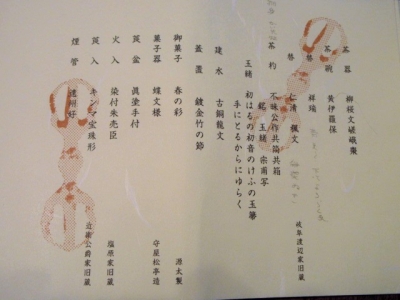 茶器　柳桜文嵯峨棗
茶碗　黄伊羅保
替　祥瑞　岐阜渡辺家旧蔵
替　仁清　楓文
茶杓　不昧公作共筒共箱
銘　玉椿　宗甫写
玉椿　初はるの初音のけふの玉箒
手にとるからにゆらく
建水　古銅龍文
蓋置　鍍金竹の節
御菓子　春の彩　源太製
菓子器　蝶文様　守屋松亭造
莨盆　真塗手付
火入　染付朱売臣　塩原家旧蔵
莨入　キンマ宝珠形
煙管　遠州好　近衛公爵家旧蔵